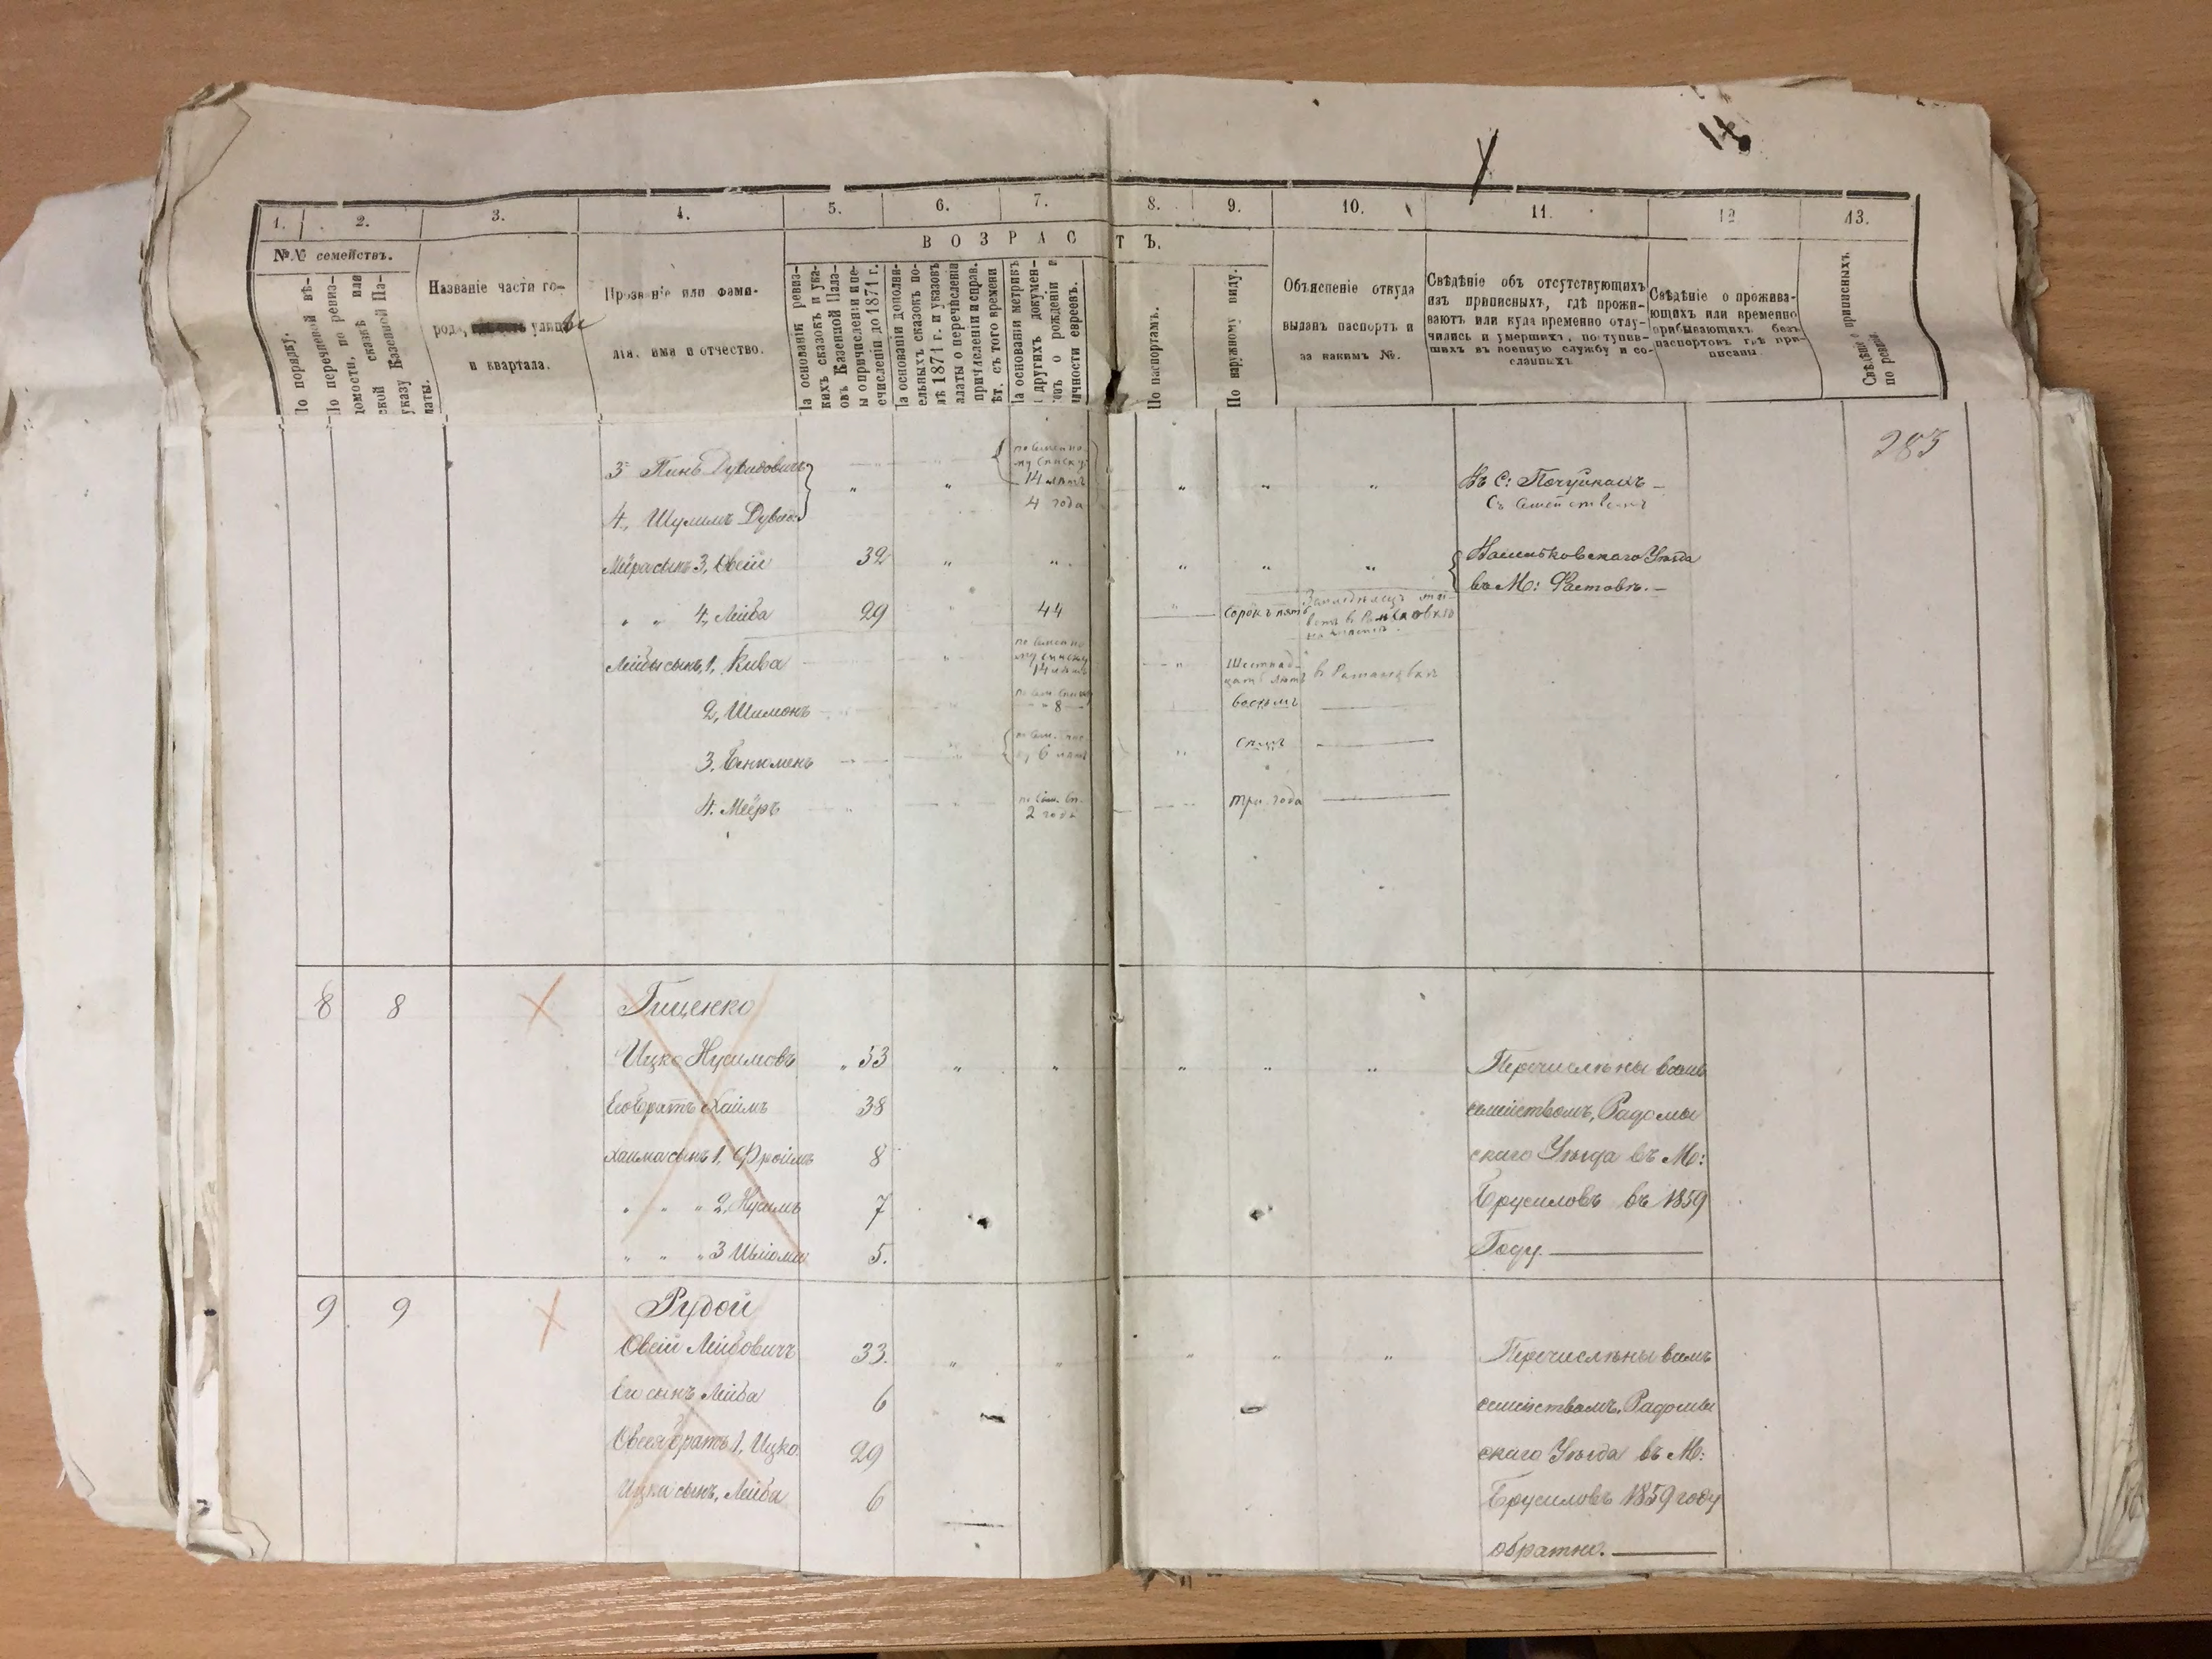 1. 2. 3. 4. 5. 6. 7. 8. 9. 10. 11. 12 13.
№№ семействъ.
По порядку.
По перечневой вѣ-
домости, по ревиз-
ской сказкѣ или
указу Казенной Па-
латы.
Названіе части го-
рода, улицы
и квартала.
Прозваніе или фами-
лія, имя и отчество.
ВОЗРАСТЪ.
На основаніи ревиз-
скихъ сказокъ и ука-
зовъ Казенной Пала-
ты о причисленіи и пе-
речисленіи до 1871 г.
На основаніи дополни-
тельныхъ сказокъ по-
слѣ 1871 г. и указовъ
палаты о перечисленіи
причисленіи и справ.
лѣт. съ того времени
На основаніи метрикъ
и другихъ докумен-
товъ о рожденіи и
личности евреевъ.
По паспортамъ.
По наружному виду.
Объясненіе откуда
выданъ паспортъ и
за какимъ №.
Свѣдѣніе объ отсутствующихъ
изъ приписныхъ, гдѣ прожи-
ваютъ или куда временно отлу-
чились и умершихъ, поступив-
шихъ въ военную службу и со-
сланныхъ.
Свѣдѣніе о прожива-
ющихъ или временно
прибывающихъ безъ
паспортовъ гдѣ при-
писаны.
Свѣдѣніе о приписныхъ
по ревизіи.
283
3. Пинь Дувидовичъ
по семейно-
му списку
14 лѣтъ
Въ С: Почуйкахъ
съ семействомъ
4, Шулимъ Дувид.
4 года
Мейра сынъ 3, Овсій 32
Васильковскаго Уѣзда
въ М: Фастовѣ.
" " 4, Лейба 29 44
Сорокъ пять
Лейбы сынъ 1, Кива
по семейно
му списку
14 лѣтъ
Шестнад-
цать лѣтъ
2, Шимонъ 8 восемь
3. Бенюмень 6 лѣтъ семь
4. Меѣръ 2 года три года
8 8 Гиценко
Ицко Нусимовъ 53 Перечислены всемъ
Его братъ Хаимъ 38 семействомъ, Радомы
Хаима сынъ 1, Фроимъ 8 скаго Уѣзда въ М:
" " " 2, Нусимъ 7 Брусиловъ въ 1859
" " " 3 Шліома 5. Году.
9 9 Рудой
Овсій Лейбовичъ 33. Перечислены всемъ
Его сынъ Лейба 6 семействомъ, Радомы
Овсея братъ 1, Ицко 29 скаго Уѣзда въ М:
Ицки сынъ, Лейба 6 Брусиловъ 1859 году
обратно.